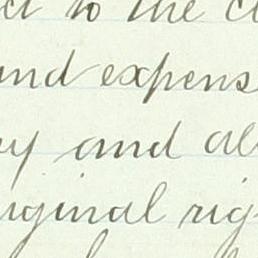 to the
and expens
and al
iginal rig